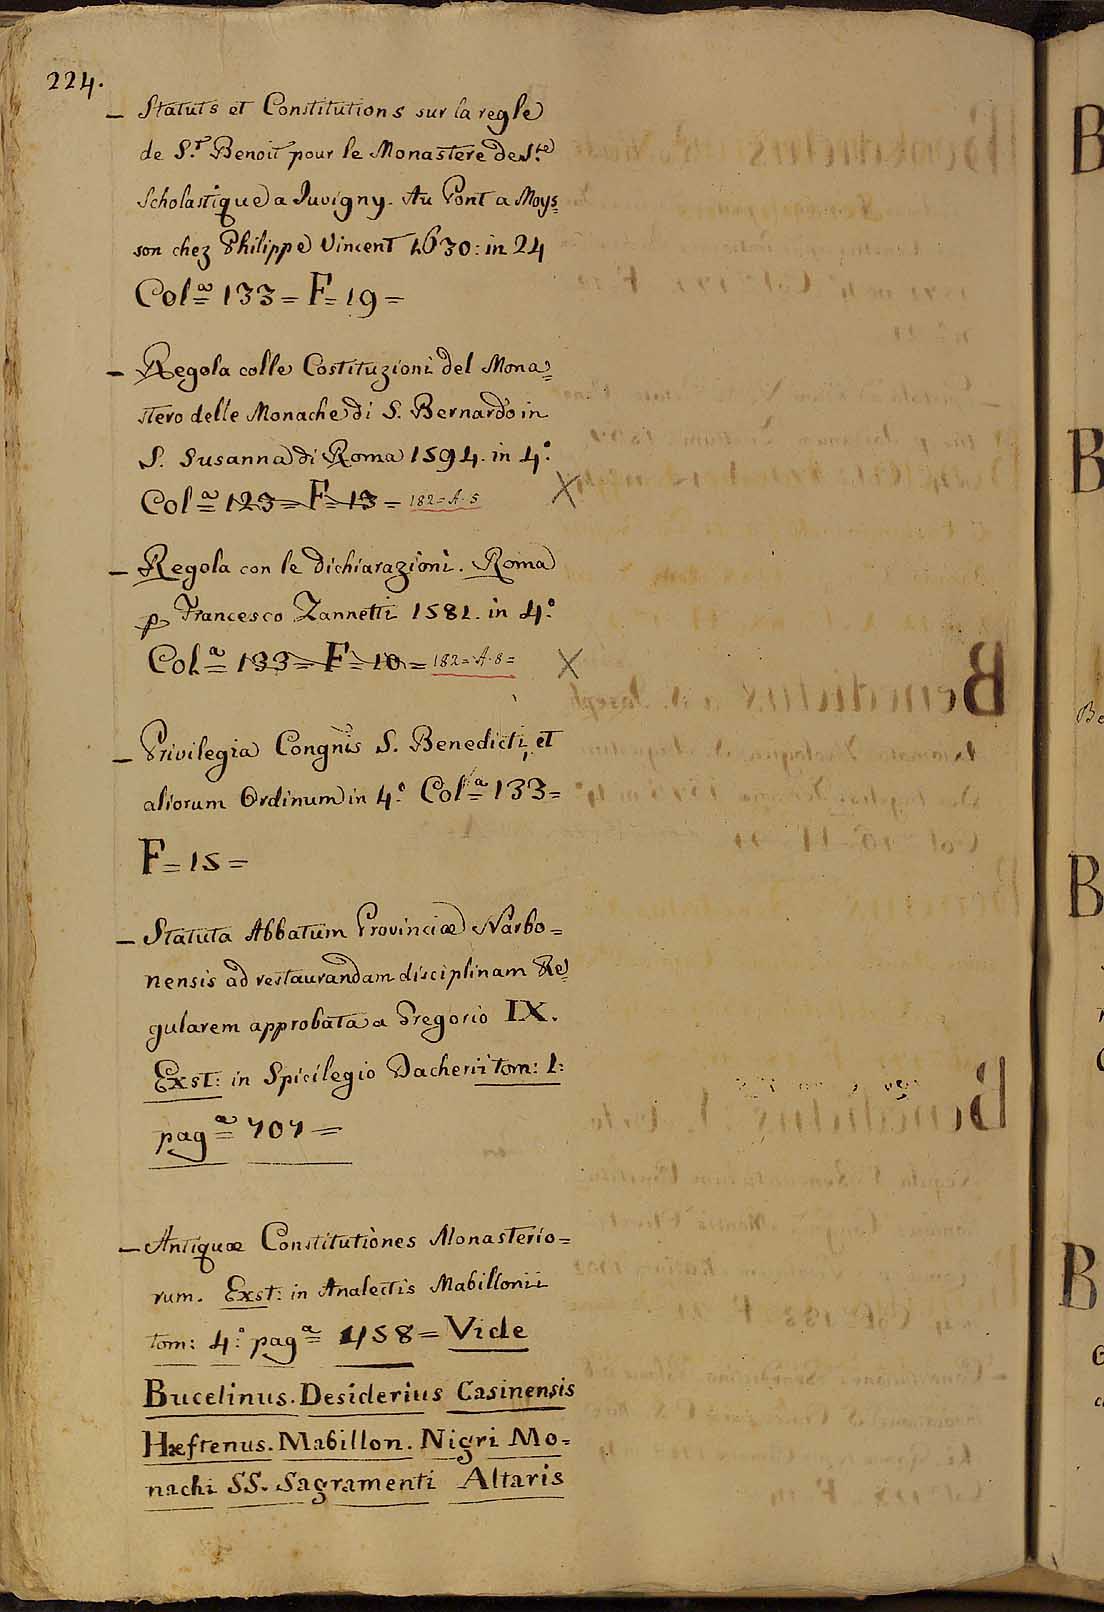 224.
— Statuts et Constitutions sur la regle
de S.t Benoit pour le Monastere de S.te
Scholastique a Juvigny. Au Pont a Moys=
son chez Philippe Vincent 1630: in 24
Col.a 133 = F = 19 =
— Regola colle Costituzioni del Mona=
stero delle Monache di S. Bernardo in
S. Susanna di Roma 1594. in 4.o
Col.a 123 = F = 13 = 182 = A. 5 X
— Regola con le dichiarazioni. Roma
p Francesco Zannetti 1581. in 4.o
Col.a 133 = F = 10 = 182 = A. 8 = X
— Privilegia Congñis S. Benedicti, et
aliorum Ordinum in 4.o Col.a 133 =
F = 15 =
— Statuta Abbatum Provinciæ Narbo=
nensis ad restaurandam disciplinam Re=
gularem approbata a Gregorio IX.
Exst: in Spicilegio Dacherii tom: 1:
pag.a 707 =
— Antiquæ Constitutiones Monasterio=
rum. Exst: in Analectis Mabillonii
tom: 4.o pag.a 458 = Vide
Bucelinus. Desiderius Casinensis
Hæftenus. Mabillon. Nigri Mo=
nachi SS. Sagramenti Altaris
B
B
Be
B
B